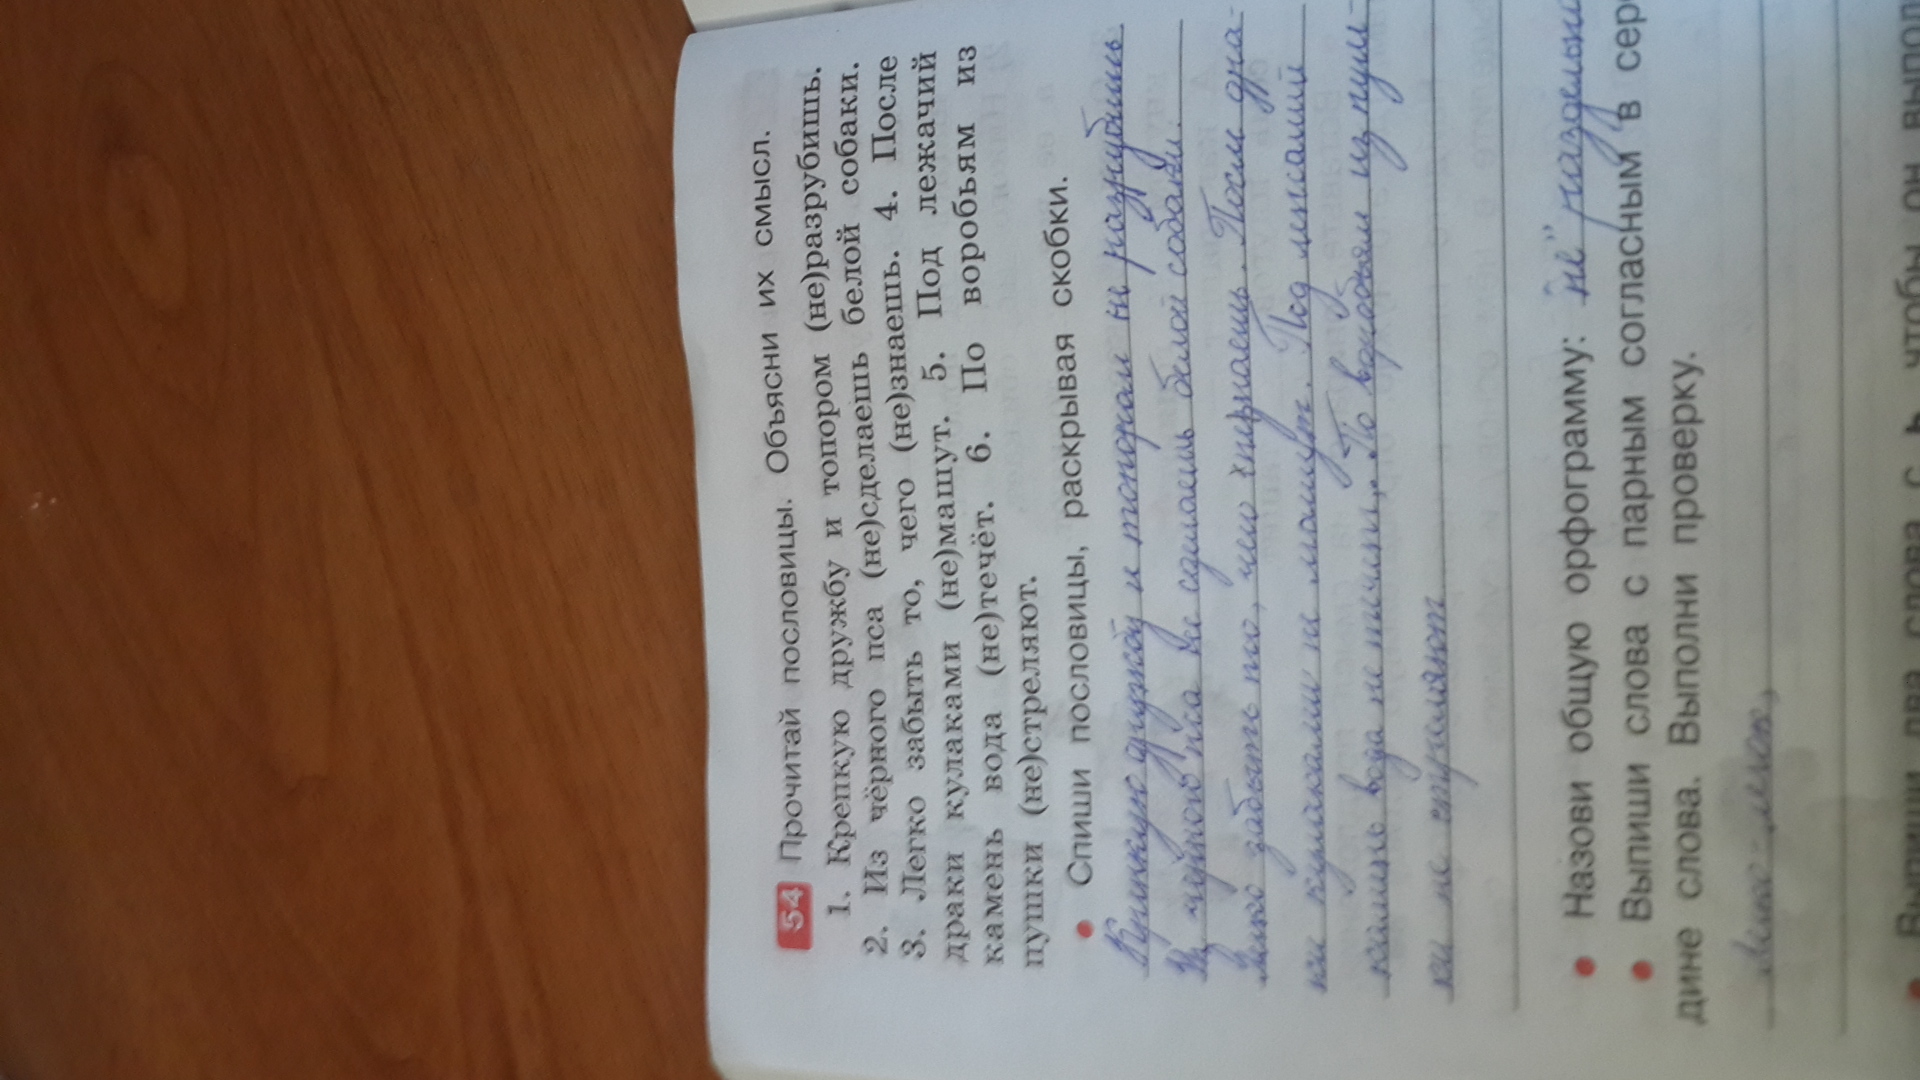 54 Прочитай пословицы. Объясни их смысл.
1. Крепкую дружбу и топором (не)разрубишь.
2. Из чёрного пса (не)сделаешь белой собаки.
3. Легко забыть то, чего (не)знаешь. 4. После
драки кулаками (не)машут. 5. Под лежачий
камень вода (не)течёт. 6. По воробьям из
пушки (не)стреляют.
• Спиши пословицы, раскрывая скобки.
Крепкую дружбу и топором не разрубишь
Из чёрного пса не сделаешь белой собаки.
Легко забыть то, чего После дра-
ки кулаками не машут. Под лежачий
камень вода не течёт. По воробьям из пуш-
ки не стреляют
• Назови общую орфограмму: не"
• Выпиши слова с парным согласным в сере
дине слова. Выполни проверку.
• Выпиши два слова с ь, чтобы он